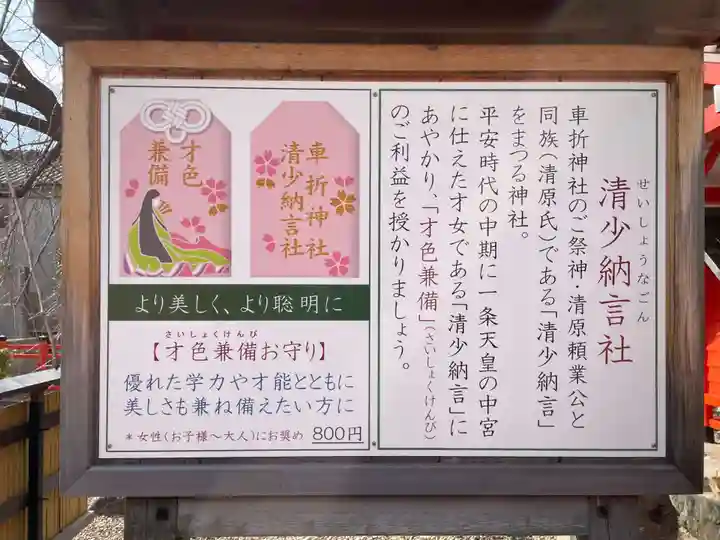 せいしょうなごん
清少納言社
車折神社のご祭神・清原頼業公と
同族（清原氏）である「清少納言」
をまつる神社。
平安時代の中期に一条天皇の中宮
に仕えた才女である「清少納言」に
あやかり、「才色兼備」（さいしょくけんび）
のご利益を授かりましょう。
才色
兼備
車折神社
清少納言社
より美しく、より聡明に
さいしょくけんび
【才色兼備お守り】
優れた学力や才能とともに
美しさも兼ね備えたい方に
＊女性（お子様～大人）にお奨め 800円